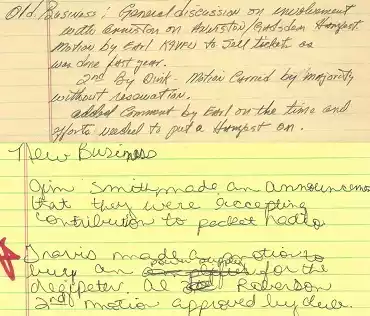 Old Business: General discussion on involvement
with anniston on Anniston/Gadsden Hamfest
Motion by Earl to sell tickets as
was done last year.
2nd By Dink - Motion Carried by majority
without reservation.
added Comment by Earl on the time and
efforts needed to put a Hamfest on.
New Business
Jim Smith made an announcemen
that they were accepting
contribution to packet radio
Travis made a motion to
buy an for the
degipeter. Al Roberson
2nd motion approved by club.